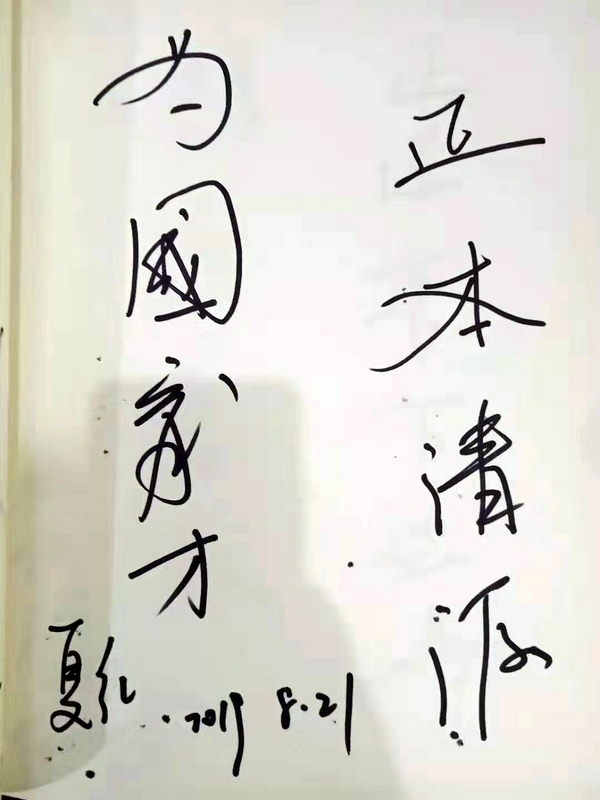 正本清源
为國育才
夏红
2019 8.21